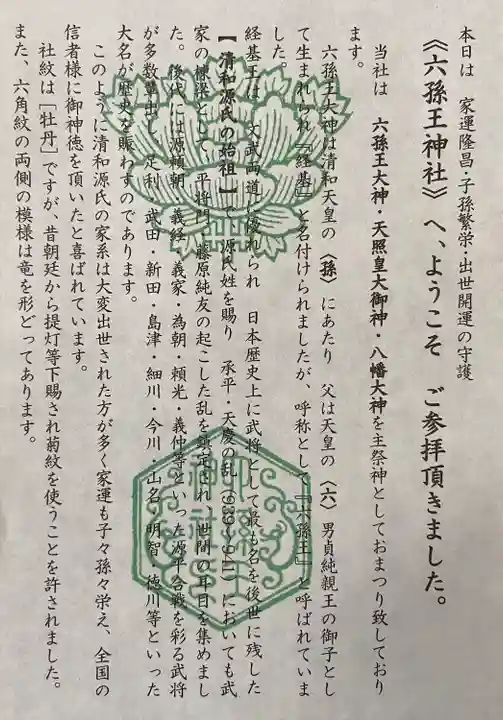 本日は 家運隆昌・子孫繁栄・出世開運の守護
《六孫王神社》へ、ようこそ ご参拝頂きました。
当社は 六孫王大神・天照皇大御神・八幡大神を主祭神としておまつり致しており
ます。
六孫王大神は清和天皇の〈孫〉にあたり 父は天皇の〈六〉男貞純親王の御子とし
て生まれられ『経基』と名付けられましたが、呼称として『六孫王』と呼ばれていま
した。
経基王は 文武両道に優れられ 日本歴史上に武将として最も名を後世に残した
【清和源氏の始祖】で 源氏姓を賜り 承平・天慶の乱(939〜941)においても武
家の棟梁として、平将門・藤原純友の起こした乱を鎮定され、世間の耳目を集めまし
た。後代には源頼朝・義経・義家・為朝・頼光・義仲等といった源平合戦を彩る武将
が多数輩出し、足利・武田・新田・島津・細川・今川・山名・明智・徳川等といった
大名が歴史を賑わすのであります。
このように清和源氏の家系は大変出世された方が多く家運も子々孫々栄え、全国の
信者様に御神徳を頂いたと喜ばれています。
社紋は[牡丹]ですが、昔朝廷から提灯等下賜され菊紋を使うことを許されました。
また、六角紋の両側の模様は竜を形どってあります。